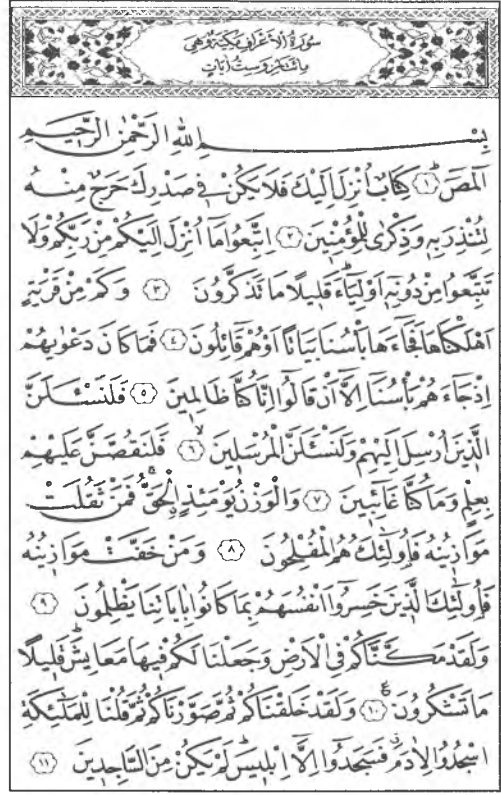 سُورَةُ الْاَعْرَافِ مَكِّيَّةٌ وَهِيَ
مِائَتَانِ وَسِتُّ اٰيَاتٍ
بِسْمِ اللّٰهِ الرَّحْمٰنِ الرَّحٖيمِ
الٓمٓصٓۜ ﴿١﴾ كِتَابٌ اُنْزِلَ اِلَيْكَ فَلَا يَكُنْ فٖى صَدْرِكَ حَرَجٌ مِنْهُ
لِتُنْذِرَ بِهٖ وَذِكْرٰى لِلْمُؤْمِنٖينَ ﴿٢﴾ اِتَّبِعُوا مَٓا اُنْزِلَ اِلَيْكُمْ مِنْ رَبِّكُمْ وَلَا
تَتَّبِعُوا مِنْ دُونِهٖٓ اَوْلِيَٓاءَۜ قَلٖيلًا مَا تَذَكَّرُونَ ﴿٣﴾ وَكَمْ مِنْ قَرْيَةٍ
اَهْلَكْنَاهَا فَجَٓاءَهَا بَأْسُنَا بَيَاتًا اَوْ هُمْ قَٓائِلُونَ ﴿٤﴾ فَمَا كَانَ دَعْوٰيهُمْ
اِذْ جَٓاءَهُمْ بَأْسُنَٓا اِلَّٓا اَنْ قَالُٓوا اِنَّا كُنَّا ظَالِمٖينَ ﴿٥﴾ فَلَنَسْـَٔلَنَّ
الَّذٖينَ اُرْسِلَ اِلَيْهِمْ وَلَنَسْـَٔلَنَّ الْمُرْسَلٖينَۙ ﴿٦﴾ فَلَنَقُصَّنَّ عَلَيْهِمْ
بِعِلْمٍ وَمَا كُنَّا غَٓائِبٖينَ ﴿٧﴾ وَالْوَزْنُ يَوْمَئِذٍۨ الْحَقُّۚ فَمَنْ ثَقُلَتْ
مَوَازٖينُهُ فَاُولٰٓئِكَ هُمُ الْمُفْلِحُونَ ﴿٨﴾ وَمَنْ خَفَّتْ مَوَازٖينُهُ
فَاُولٰٓئِكَ الَّذٖينَ خَسِرُٓوا اَنْفُسَهُمْ بِمَا كَانُوا بِاٰيَاتِنَا يَظْلِمُونَ ﴿٩﴾
وَلَقَدْ مَكَّنَّاكُمْ فِى الْاَرْضِ وَجَعَلْنَا لَكُمْ فٖيهَا مَعَايِشَۜ قَلٖيلًا
مَا تَشْكُرُونَ ﴿١٠﴾ وَلَقَدْ خَلَقْنَاكُمْ ثُمَّ صَوَّرْنَاكُمْ ثُمَّ قُلْنَا لِلْمَلٰٓئِكَةِ
اسْجُدُوا لِاٰدَمَۗ فَسَجَدُٓوا اِلَّٓا اِبْلٖيسَۜ لَمْ يَكُنْ مِنَ السَّاجِدٖينَ ﴿١١﴾